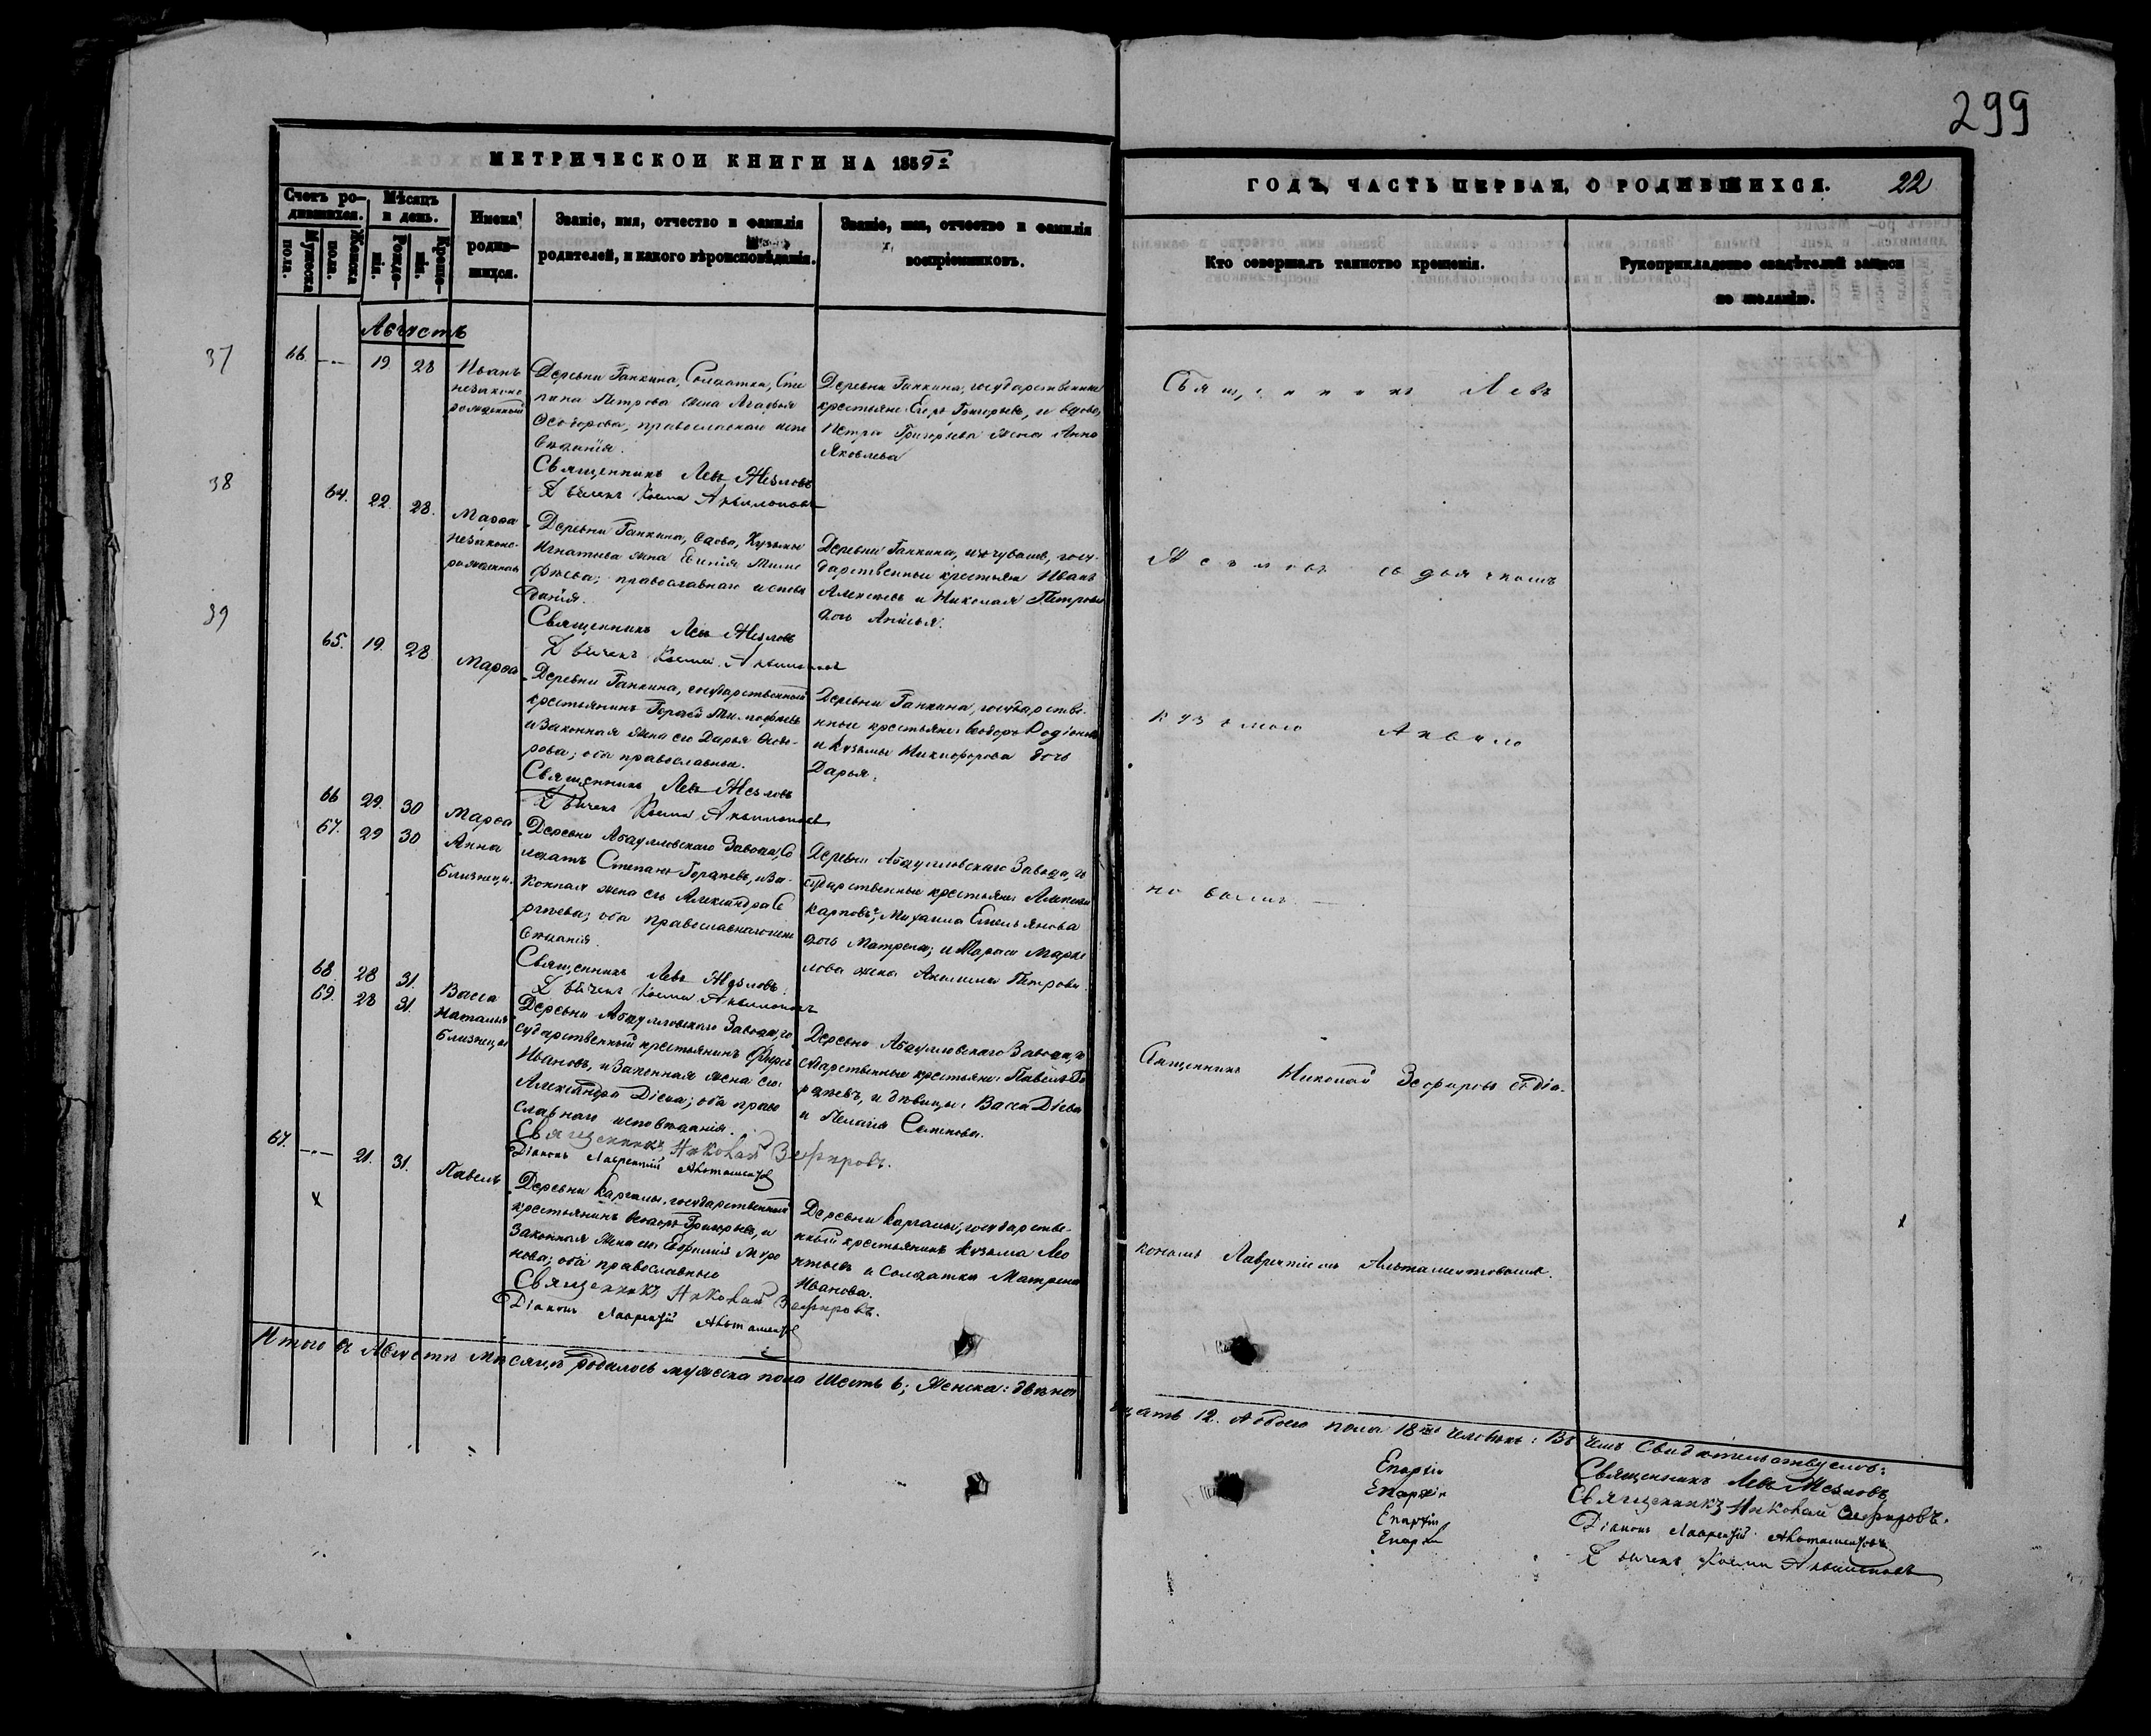 299
МЕТРИЧЕСКОЙ КНИГИ НА 1859
ГОДЪ, ЧАСТЬ ПЕРВАЯ, О РОДИВШИХСЯ. 22
Счетъ ро-
дившихся.
Мужеска
пола.
Женска
пола.
Мѣсяцъ
и день.
Рожде-
нія.
Креще-
нія.
Имена
родив-
шихся.
Званіе, имя, отчество и фамилія
родителей, и какого вѣроисповѣданія.
Званіе, имя, отчество и фамилія
воспріемниковъ.
Кто совершалъ таинство крещенія.
Рукоприкладство свидѣтелей записи
по желанію.
Августъ
37
66. 19. 28
Иванъ
незаконо
рожденный
Деревни Ганкина, Солдатка, Сте
пана Петрова жена Агафья
Ѳеодорова; православнаго испо
вѣданія.
Священникъ Левъ Жезловъ
Дьячекъ Косма Аквилоновъ
Деревни Ганкина, государственные
крестьяне: Егоръ Григорьевъ, и вдова,
Петра Григорьева жена Анна
Яковлева
Священникъ Левъ
38
64. 22. 28.
Марѳа
незаконо-
рожденная
Деревни Ганкина, вдова, Кузьмы
Игнатьева жена Евгенія Тимо
фѣева; православнаго исповѣ
данія.
Священникъ Левъ Жезловъ
Дьячекъ Косма Аквилоновъ
Деревни Ганкина, изъ чувашъ, госу-
дарственные крестьяне Иванъ
Алексѣевъ и Николая Петрова
дочь Анисья.
Жезловъ съ дьячкомъ
39
65. 19. 28
Марѳа
Деревни Ганкина, государственный
крестьянинъ
и законная жена его Дарья Ѳеодо-
рова; оба православные.
Священникъ Левъ Жезловъ
Дьячекъ Косма Аквилоновъ
Деревни Ганкина, государстве-
нные крестьяне: Ѳеодоръ Родіоновъ
и Кузьмы Никифорова дочь
Дарья.
Кузьмою Аквило
66 29. 30
Марѳа
67. 29 30
Анна
Близнецы.
Деревни Абдулловскаго Завода, Со
лдатъ Степанъ и за-
конная жена его Александра Се
ргѣева; оба православнаго испо
вѣданія.
Священникъ Левъ Жезловъ.
Дьячекъ Косма Аквилоновъ
Деревни Абдулловскаго Завода, го
сударственные крестьяне: Алексѣй
Карповъ, Михаила Емельянова
дочь Матрена; и Тараса Марке
лова жена Акилина Петрова.
новымъ.
68. 28 31.
Васса
69. 28 31.
Наталья
Близнецы
Деревни Абдулловскаго Завода, го
сударственный крестьянинъ
Ивановъ, и законная жена его
Александра Діева; оба право
славнаго исповѣданія.
Священникъ Николай Зефировъ.
Діаконъ Лаврентій Альтаментовъ
Деревни Абдулловскаго Завода, го
сударственные крестьяне: Павелъ
и дѣвицы: Васса Діева
и Пелагія Семенова.
Священникъ Николай Зефировъ съ діа-
67. 21. 31.
Павелъ
Деревни Каргалы, государственный
крестьянинъ Ѳеодоръ Григорьевъ, и
законная жена его Евфимія Миро
нова; оба православные
Священникъ Николай Зефировъ.
Діаконъ Лаврентій Альтаментовъ
Деревни Каргалы, государстве-
нный крестьянинъ Кузьма Лео
нтьевъ и Солдатка Матрена
Иванова.
кономъ Лаврентіемъ Альтаментовымъ.
Итого въ Августѣ мѣсяцѣ родилось мужеска пола шесть 6; женска: двѣнад
цать 12. А обоего пола 18 человѣкъ: Въ чемъ Свидѣтельствуемъ:
Священникъ Левъ Жезловъ
Священникъ Николай Зефировъ.
Діаконъ Лаврентій Альтаментовъ
Дьячекъ Косма Аквилоновъ